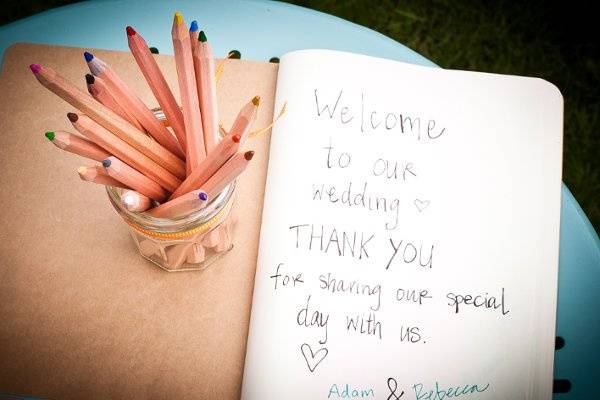 Welcome
to our
wedding ♡
THANK YOU
for sharing our special
day with us.
♡
Adam & Rebecca